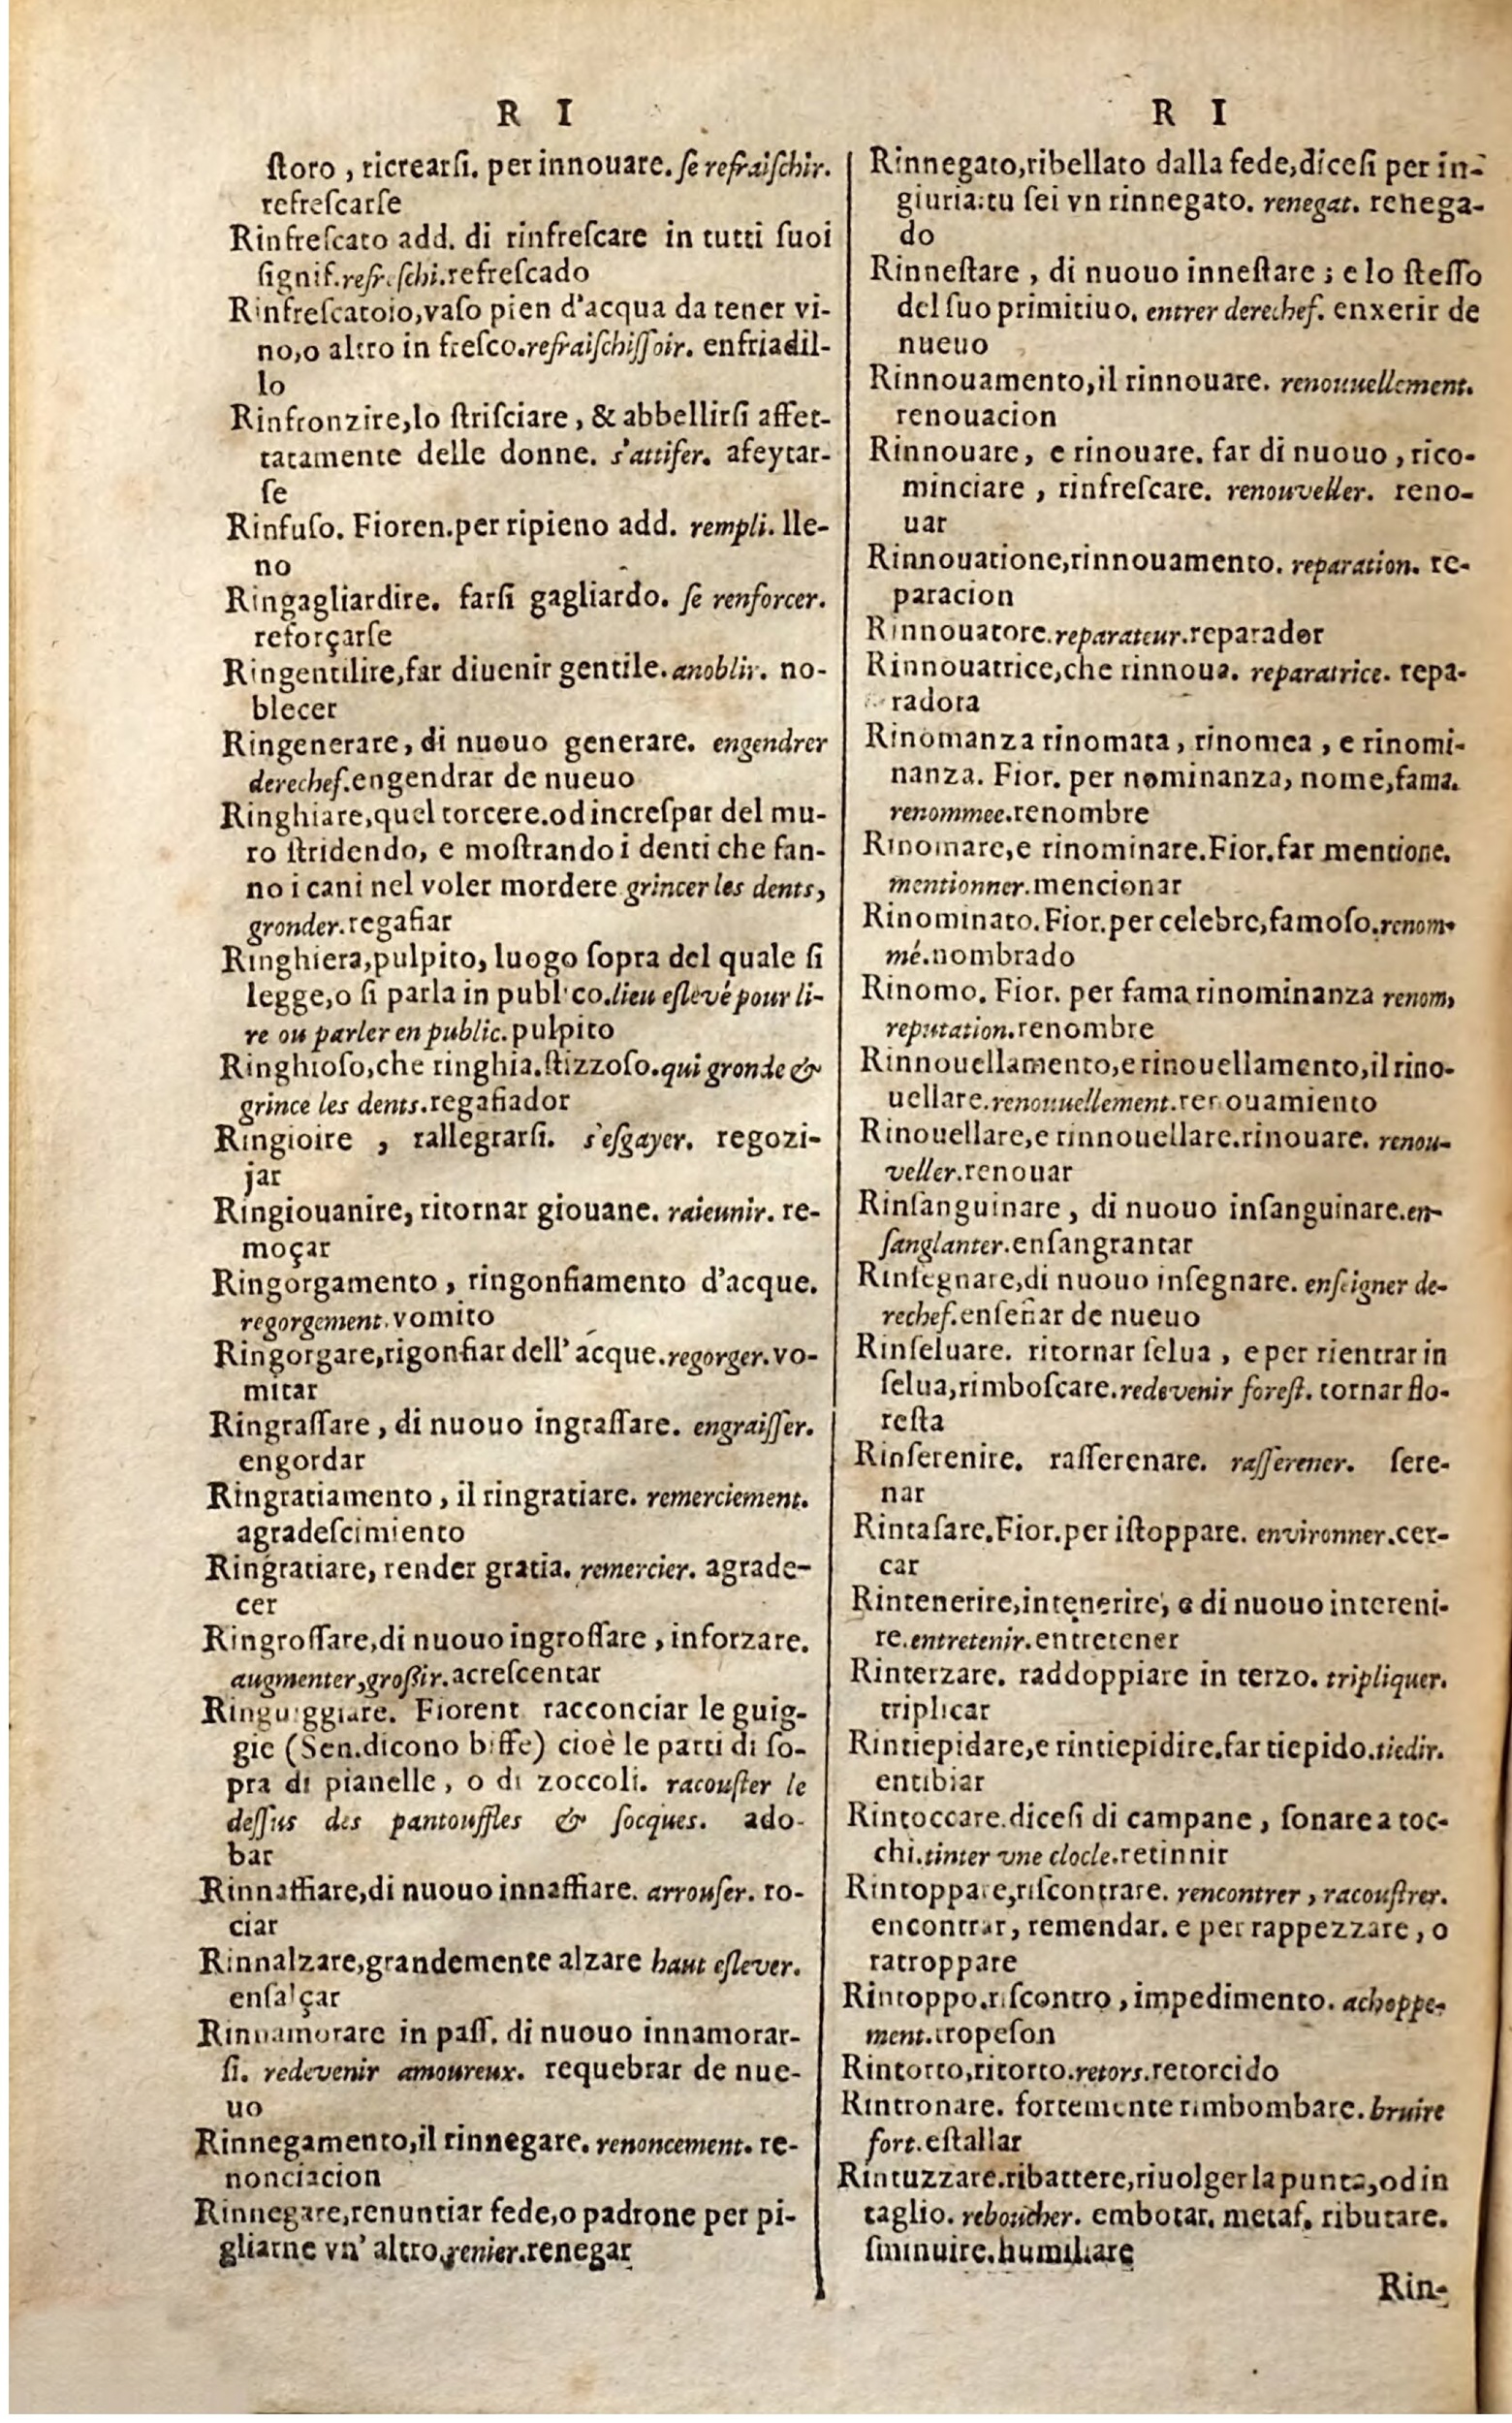 R I
ſtoro , ricrearſi. per innouare. ſe refraiſchir.
refreſcarſe
Rinfreſcato add. di rinfreſcare in tutti ſuoi
ſignif. refreſchi. refreſcado
Rinfreſcatoio, vaſo pien d'acqua da tener vi-
no, o altro in freſco. refraiſchiſſoir. enfriadil-
lo
Rinfronzire, lo ſtriſciare , & abbellirſi affet-
tatamente delle donne. s'attifer. afeytar-
ſe
Rinfuſo. Fioren. per ripieno add. rempli. lle-
no
Ringagliardire. farſi gagliardo. ſe renforcer.
reforçarſe
Ringentilire, far diuenir gentile. anoblir. no-
blecer
Ringenerare, di nuouo generare. engendrer
derechef. engendrar de nueuo
Ringhiare, quel torcere. od increſpar del mu-
ro ſtridendo, e moſtrando i denti che fan-
no i cani nel voler mordere grincer les dents,
gronder. regañar
Ringhiera, pulpito, luogo ſopra del quale ſi
legge, o ſi parla in publico. lieu eſlevé pour li-
re ou parler en public. pulpito
Ringhioſo, che ringhia. ſtizzoſo. qui gronde &
grince les dents. regañador
Ringioire , rallegrarſi. s'eſgayer. regozi-
jar
Ringiouanire, ritornar giouane. raieunir. re-
moçar
Ringorgamento , ringonfiamento d'acque.
regorgement. vomito
Ringorgare, rigonfiar dell' acque. regorger. vo-
mitar
Ringraſſare , di nuouo ingraſſare. engraiſſer.
engordar
Ringratiamento , il ringratiare. remerciement.
agradeſcimiento
Ringratiare, render gratia. remercier. agrade-
cer
Ringroſſare, di nuouo ingroſſare , inforzare.
augmenter, groſſir. acreſcentar
Ringuiggiare. Fiorent racconciar le guig-
gie (Sen. dicono biffe) cioè le parti di ſo-
pra di pianelle , o di zoccoli. racouſter le
deſſus des pantouffles & ſocques. ado-
bar
Rinnaffiare, di nuouo innaffiare. arrouſer. ro-
ciar
Rinnalzare, grandemente alzare haut eſlever.
enſalçar
Rinnamorare in paſſ. di nuouo innamorar-
ſi. redevenir amoureux. requebrar de nue-
uo
Rinnegamento, il rinnegare. renoncement. re-
nonciacion
Rinnegare, renuntiar fede, o padrone per pi-
gliarne vn' altro. renier. renegar
R I
Rinnegato, ribellato dalla fede, diceſi per in-
giuria: tu ſei vn rinnegato. renegat. renega-
do
Rinneſtare , di nuouo inneſtare ; e lo ſteſſo
del ſuo primitiuo. entrer derechef. enxerir de
nueuo
Rinnouamento, il rinnouare. renouuellement.
renouacion
Rinnouare, e rinouare. far di nuouo , rico-
minciare , rinfreſcare. renouveller. reno-
uar
Rinnouatione, rinnouamento. reparation. re-
paracion
Rinnouatore. reparateur. reparador
Rinnouatrice, che rinnoua. reparatrice. repa-
radora
Rinomanza rinomata , rinomea , e rinomi-
nanza. Fior. per nominanza, nome, fama.
renommee. renombre
Rinomare, e rinominare. Fior. far mentione.
mentionner. mencionar
Rinominato. Fior. per celebre, famoſo. renom-
mé. nombrado
Rinomo. Fior. per fama rinominanza renom,
reputation. renombre
Rinnouellamento, e rinouellamento, il rino-
uellare. renouuellement. renouamiento
Rinouellare, e rinnouellare. rinouare. renou-
veller. renouar
Rinſanguinare , di nuouo inſanguinare. en-
ſanglanter. enſangrantar
Rinſegnare, di nuouo inſegnare. enſeigner de-
rechef. enſeñar de nueuo
Rinſeluare. ritornar ſelua , e per rientrar in
ſelua, rimboſcare. redevenir foreſt. tornar flo-
reſta
Rinſerenire. raſſerenare. raſſerener. ſere-
nar
Rintaſare. Fior. per iſtoppare. environner. cer-
car
Rintenerire, intenerire, o di nuouo intereni-
re. entretenir. entretener
Rinterzare. raddoppiare in terzo. tripliquer.
triplicar
Rintiepidare, e rintiepidire. far tiepido. tiedir.
entibiar
Rintoccare. diceſi di campane , ſonare a toc-
chi. tinter vne clocle. retinnir
Rintoppare, riſcontrare. rencontrer , racouſtrer.
encontrar, remendar. e per rappezzare , o
rattoppare
Rintoppo. riſcontro , impedimento. achoppe-
ment. tropeſon
Rintorto, ritorto. retors. retorcido
Rintronare. fortemente rimbombare. bruire
fort. eſtallar
Rintuzzare. ribattere, riuolger la punta, od in
taglio. reboucher. embotar. metaf. ributare.
ſminuire. humiliare
Rin-